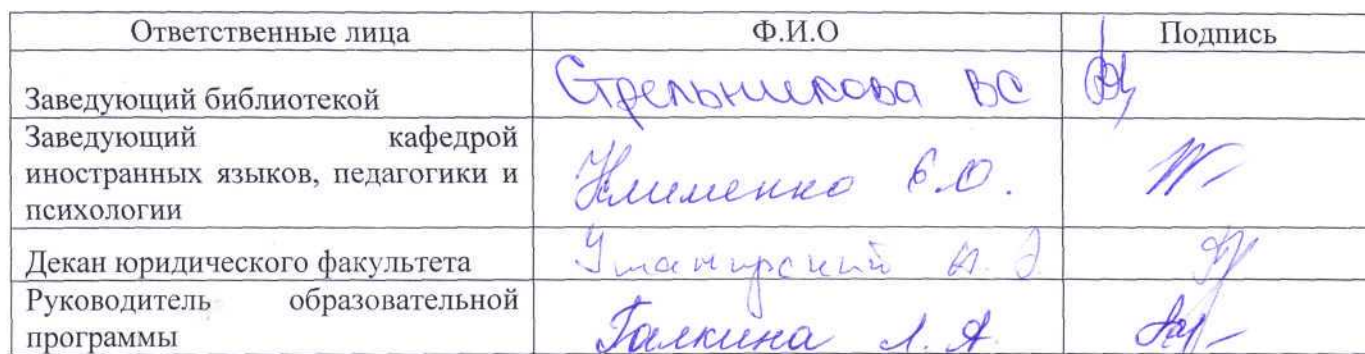 Ответственные лица Ф.И.О Подпись
Заведующий библиотекой Стрельникова ВС
Заведующий кафедрой
иностранных языков, педагогики и
психологии
Клименко Е.О.
Декан юридического факультета
Руководитель образовательной
программы
Галкина Л. А.